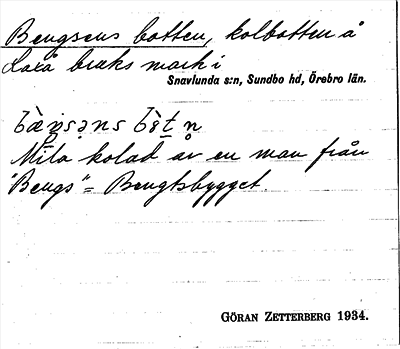 Bengsens botten, kolbotten å
Laxå bruks mark i
Snavlunda s:n, Sundbo hd, Örebro län.
Mila kolad av en man från
"Bengs" = Bengtsbygget.
GÖRAN ZETTERBERG 1934.